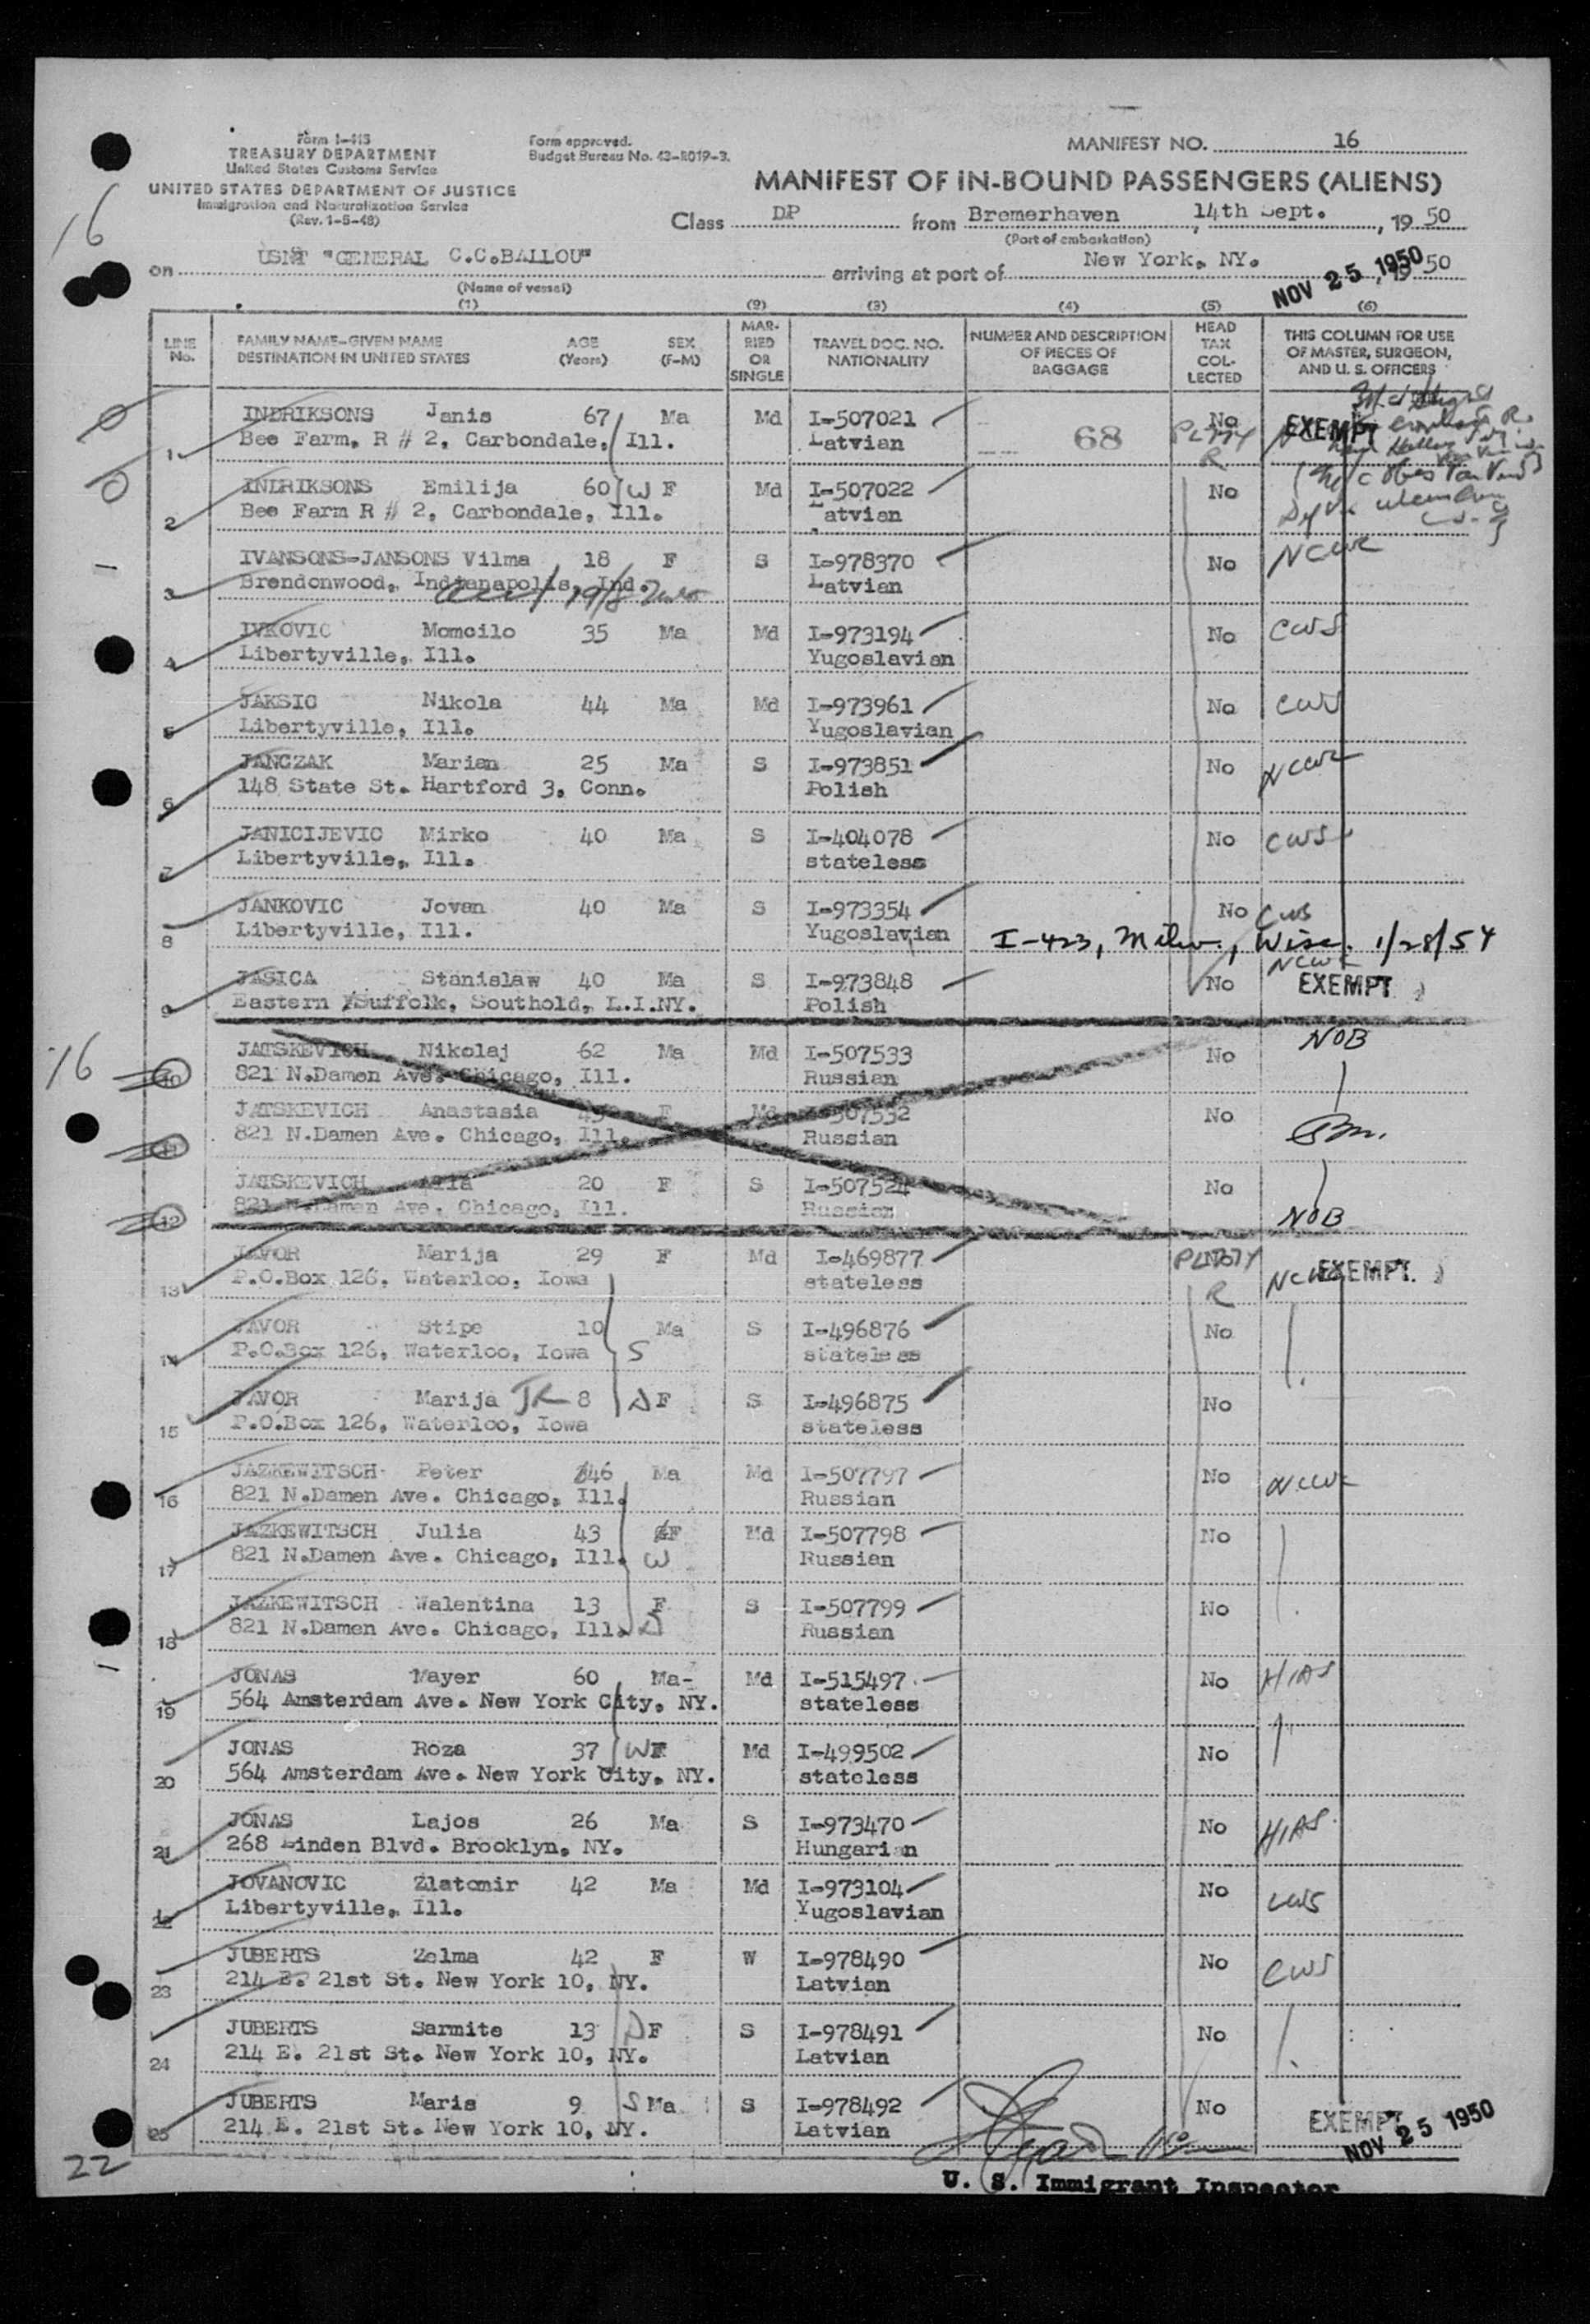 Form I-415
TREASURY DEPARTMENT
United States Customs Service
UNITED STATES DEPARTMENT OF JUSTICE
Immigration and Naturalization Service
(Rev. 1-5-48)
Form approved.
Budget Bureau No. 43-R019-3.
MANIFEST NO. 16
MANIFEST OF IN-BOUND PASSENGERS (ALIENS)
Class DP from Bremerhaven, 14th Sept., 19 50
(Port of embarkation)
16
on USNT "GENERAL C.C.BALLOU" arriving at port of New York, NY. , 19 50
NOV 25 1950
(Name of vessel)
(1) (2) (3) (4) (5) (6)
LINE No.
FAMILY NAME-GIVEN NAME AGE SEX
DESTINATION IN UNITED STATES (Years) (F-M)
MARRIED OR SINGLE
TRAVEL DOC. NO. NATIONALITY
NUMBER AND DESCRIPTION OF PIECES OF BAGGAGE
HEAD TAX COLLECTED
THIS COLUMN FOR USE OF MASTER, SURGEON, AND U. S. OFFICERS
INDRIKSONS Janis 67 Ma Md I-507021 No EXEMPT
1 Bee Farm, R # 2, Carbondale, Ill. Latvian 68
INDRIKSONS Emilija 60 W F Md I-507022 No
2 Bee Farm R # 2, Carbondale, Ill. Latvian
IVANSONS-JANSONS Vilma 18 F S I-978370 No NCWC
3 Brendonwood, Indianapolis, Ind. Latvian
IVKOVIC Momcilo 35 Ma Md I-973194 No CWS
4 Libertyville, Ill. Yugoslavian
JAKSIC Nikola 44 Ma Md I-973961 No CWS
5 Libertyville, Ill. Yugoslavian
JANCZAK Marian 25 Ma S I-973851 No NCWC
6 148 State St. Hartford 3. Conn. Polish
JANICIJEVIC Mirko 40 Ma S I-404078 No CWS
7 Libertyville, Ill. stateless
JANKOVIC Jovan 40 Ma S I-973354 No CWS
8 Libertyville, Ill. Yugoslavian I-423, Milw., Wisc. 1/28/54
JASICA Stanislaw 40 Ma S I-973848 No NCWC EXEMPT
9 Eastern Suffolk, Southold, L.I.NY. Polish
16
JATSKEVICH Nikolaj 62 Ma Md I-507533 No NOB
10 821 N.Damen Ave. Chicago, Ill. Russian
JATSKEVICH Anastasia F Md I-507532 No
11 821 N.Damen Ave. Chicago, Ill. Russian
JATSKEVICH Alla 20 F S I-507524 No
12 821 N.Damen Ave. Chicago, Ill. Russian NOB
JAVOR Marija 29 F Md I-469877 NCWC EXEMPT.
13 P.O.Box 126, Waterloo, Iowa stateless R
JAVOR Stipe 10 Ma S I-496876 No
14 P.O.Box 126, Waterloo, Iowa S stateless
JAVOR Marija JR 8 D F S I-496875 No
15 P.O.Box 126, Waterloo, Iowa stateless
JAZKEWITSCH Peter 46 Ma Md I-507797 No NCWC
16 821 N.Damen Ave. Chicago, Ill. Russian
JAZKEWITSCH Julia 43 F Md I-507798 No
17 821 N.Damen Ave. Chicago, Ill. W Russian
JAZKEWITSCH Walentina 13 F S I-507799 No
18 821 N.Damen Ave. Chicago, Ill. D Russian
JONAS Mayer 60 Ma- Md I-515497 No HIAS
19 564 Amsterdam Ave. New York City, NY. stateless
JONAS Roza 37 W F Md I-499502 No
20 564 Amsterdam Ave. New York City, NY. stateless
JONAS Lajos 26 Ma S I-973470 No HIAS
21 268 Linden Blvd. Brooklyn, NY. Hungarian
JOVANOVIC Zlatomir 42 Ma Md I-973104 No CWS
22 Libertyville, Ill. Yugoslavian
JUBERTS Zelma 42 F W I-978490 No CWS
23 214 E. 21st St. New York 10, NY. Latvian
JUBERTS Sarmite 13 D F S I-978491 No
24 214 E. 21st St. New York 10, NY. Latvian
JUBERTS Maris 9 S Ma S I-978492 No EXEMPT
25 214 E. 21st St. New York 10, NY. Latvian NOV 25 1950
22
U. S. Immigrant Inspector